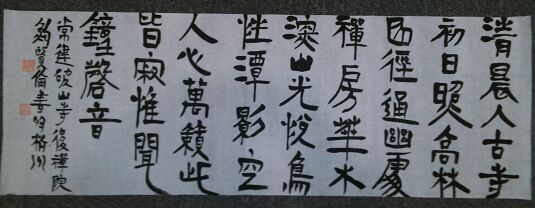 清晨入古寺
初日照高林
曲徑通幽處
禪房華木
深山光悅鳥
性潭影空
人心萬籟此
皆寂惟聞
鐘磬音
常建破山寺後禪院
書於